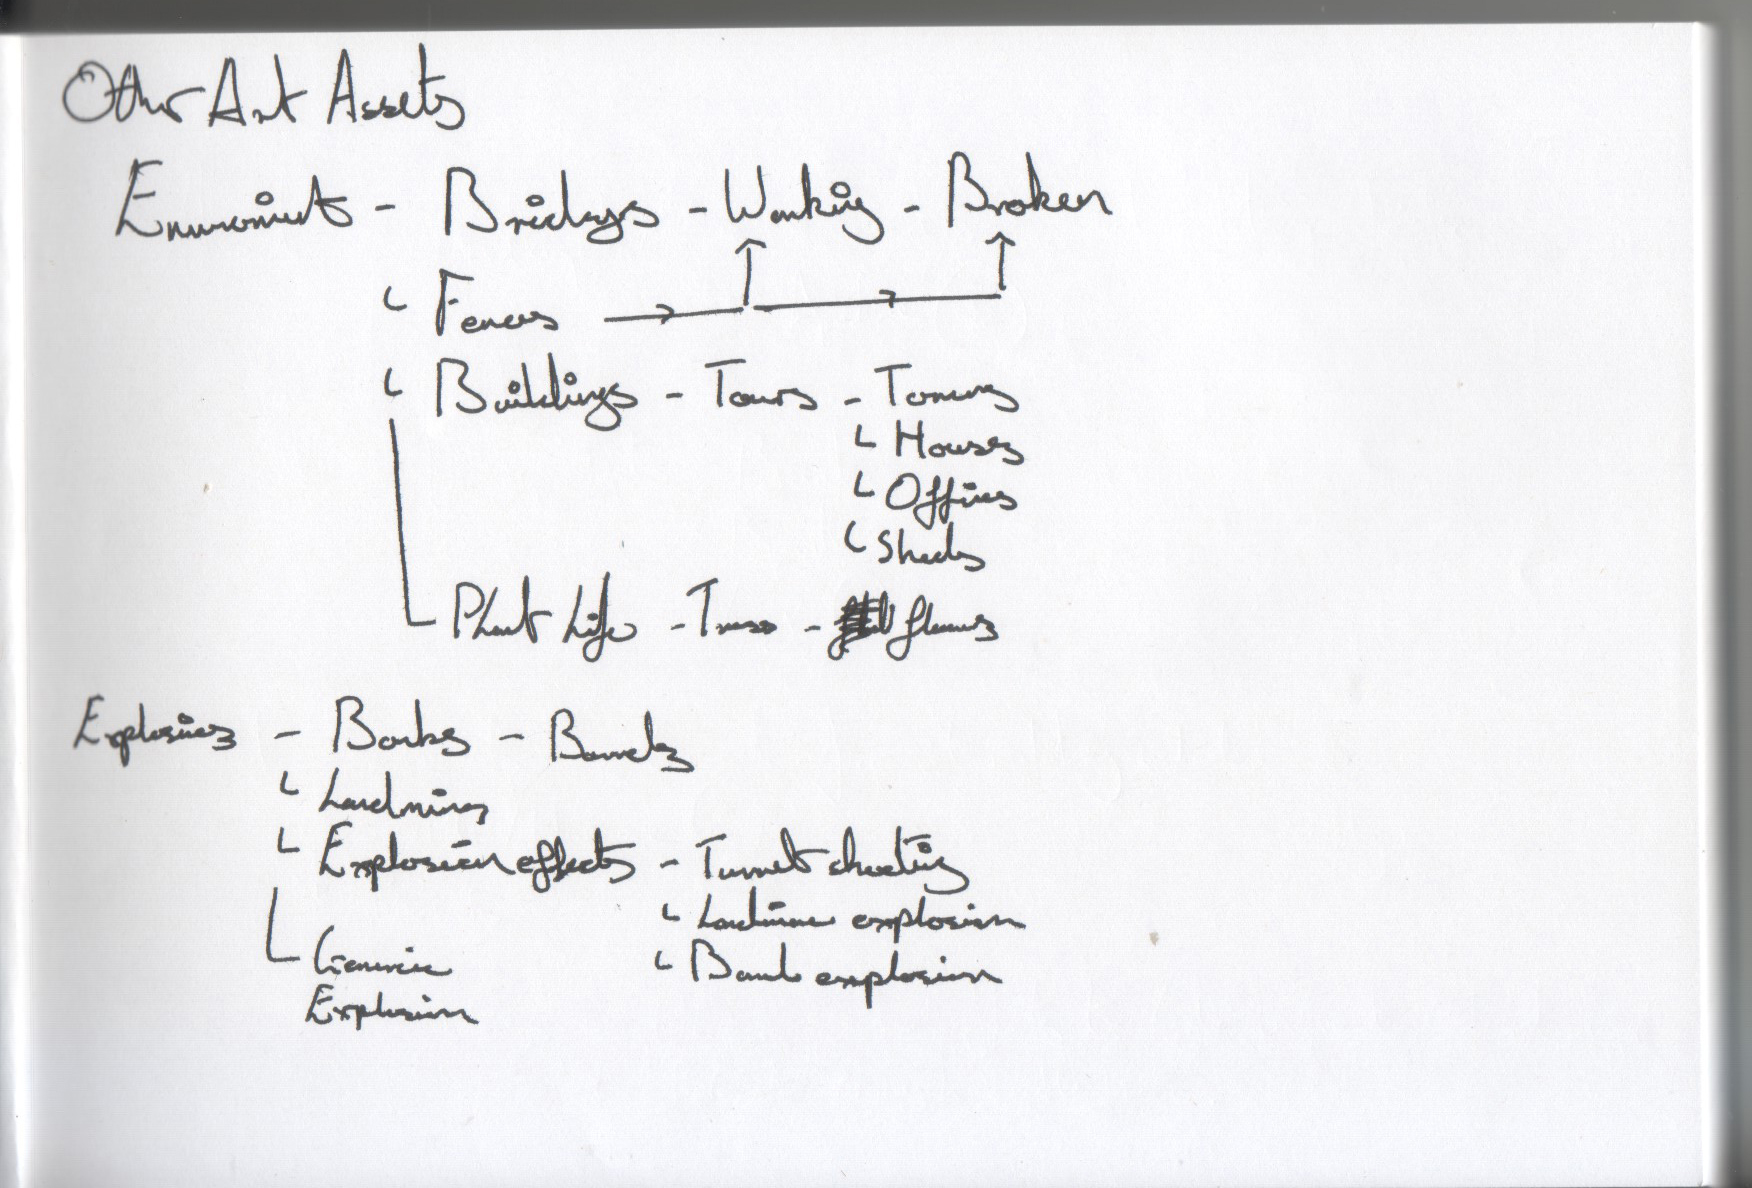 Other Art Assets
Enviroment - Bridges - Working - Broken
Fences
Buildings - Towers - Towns
Houses
Offices
Sheds
Plant Life - Trees - flowers
Explosives - Bombs - Barrels
Landmines
Explosion effects - Turret shooting
Landmine explosion
Generic
Bomb explosion
Explosion